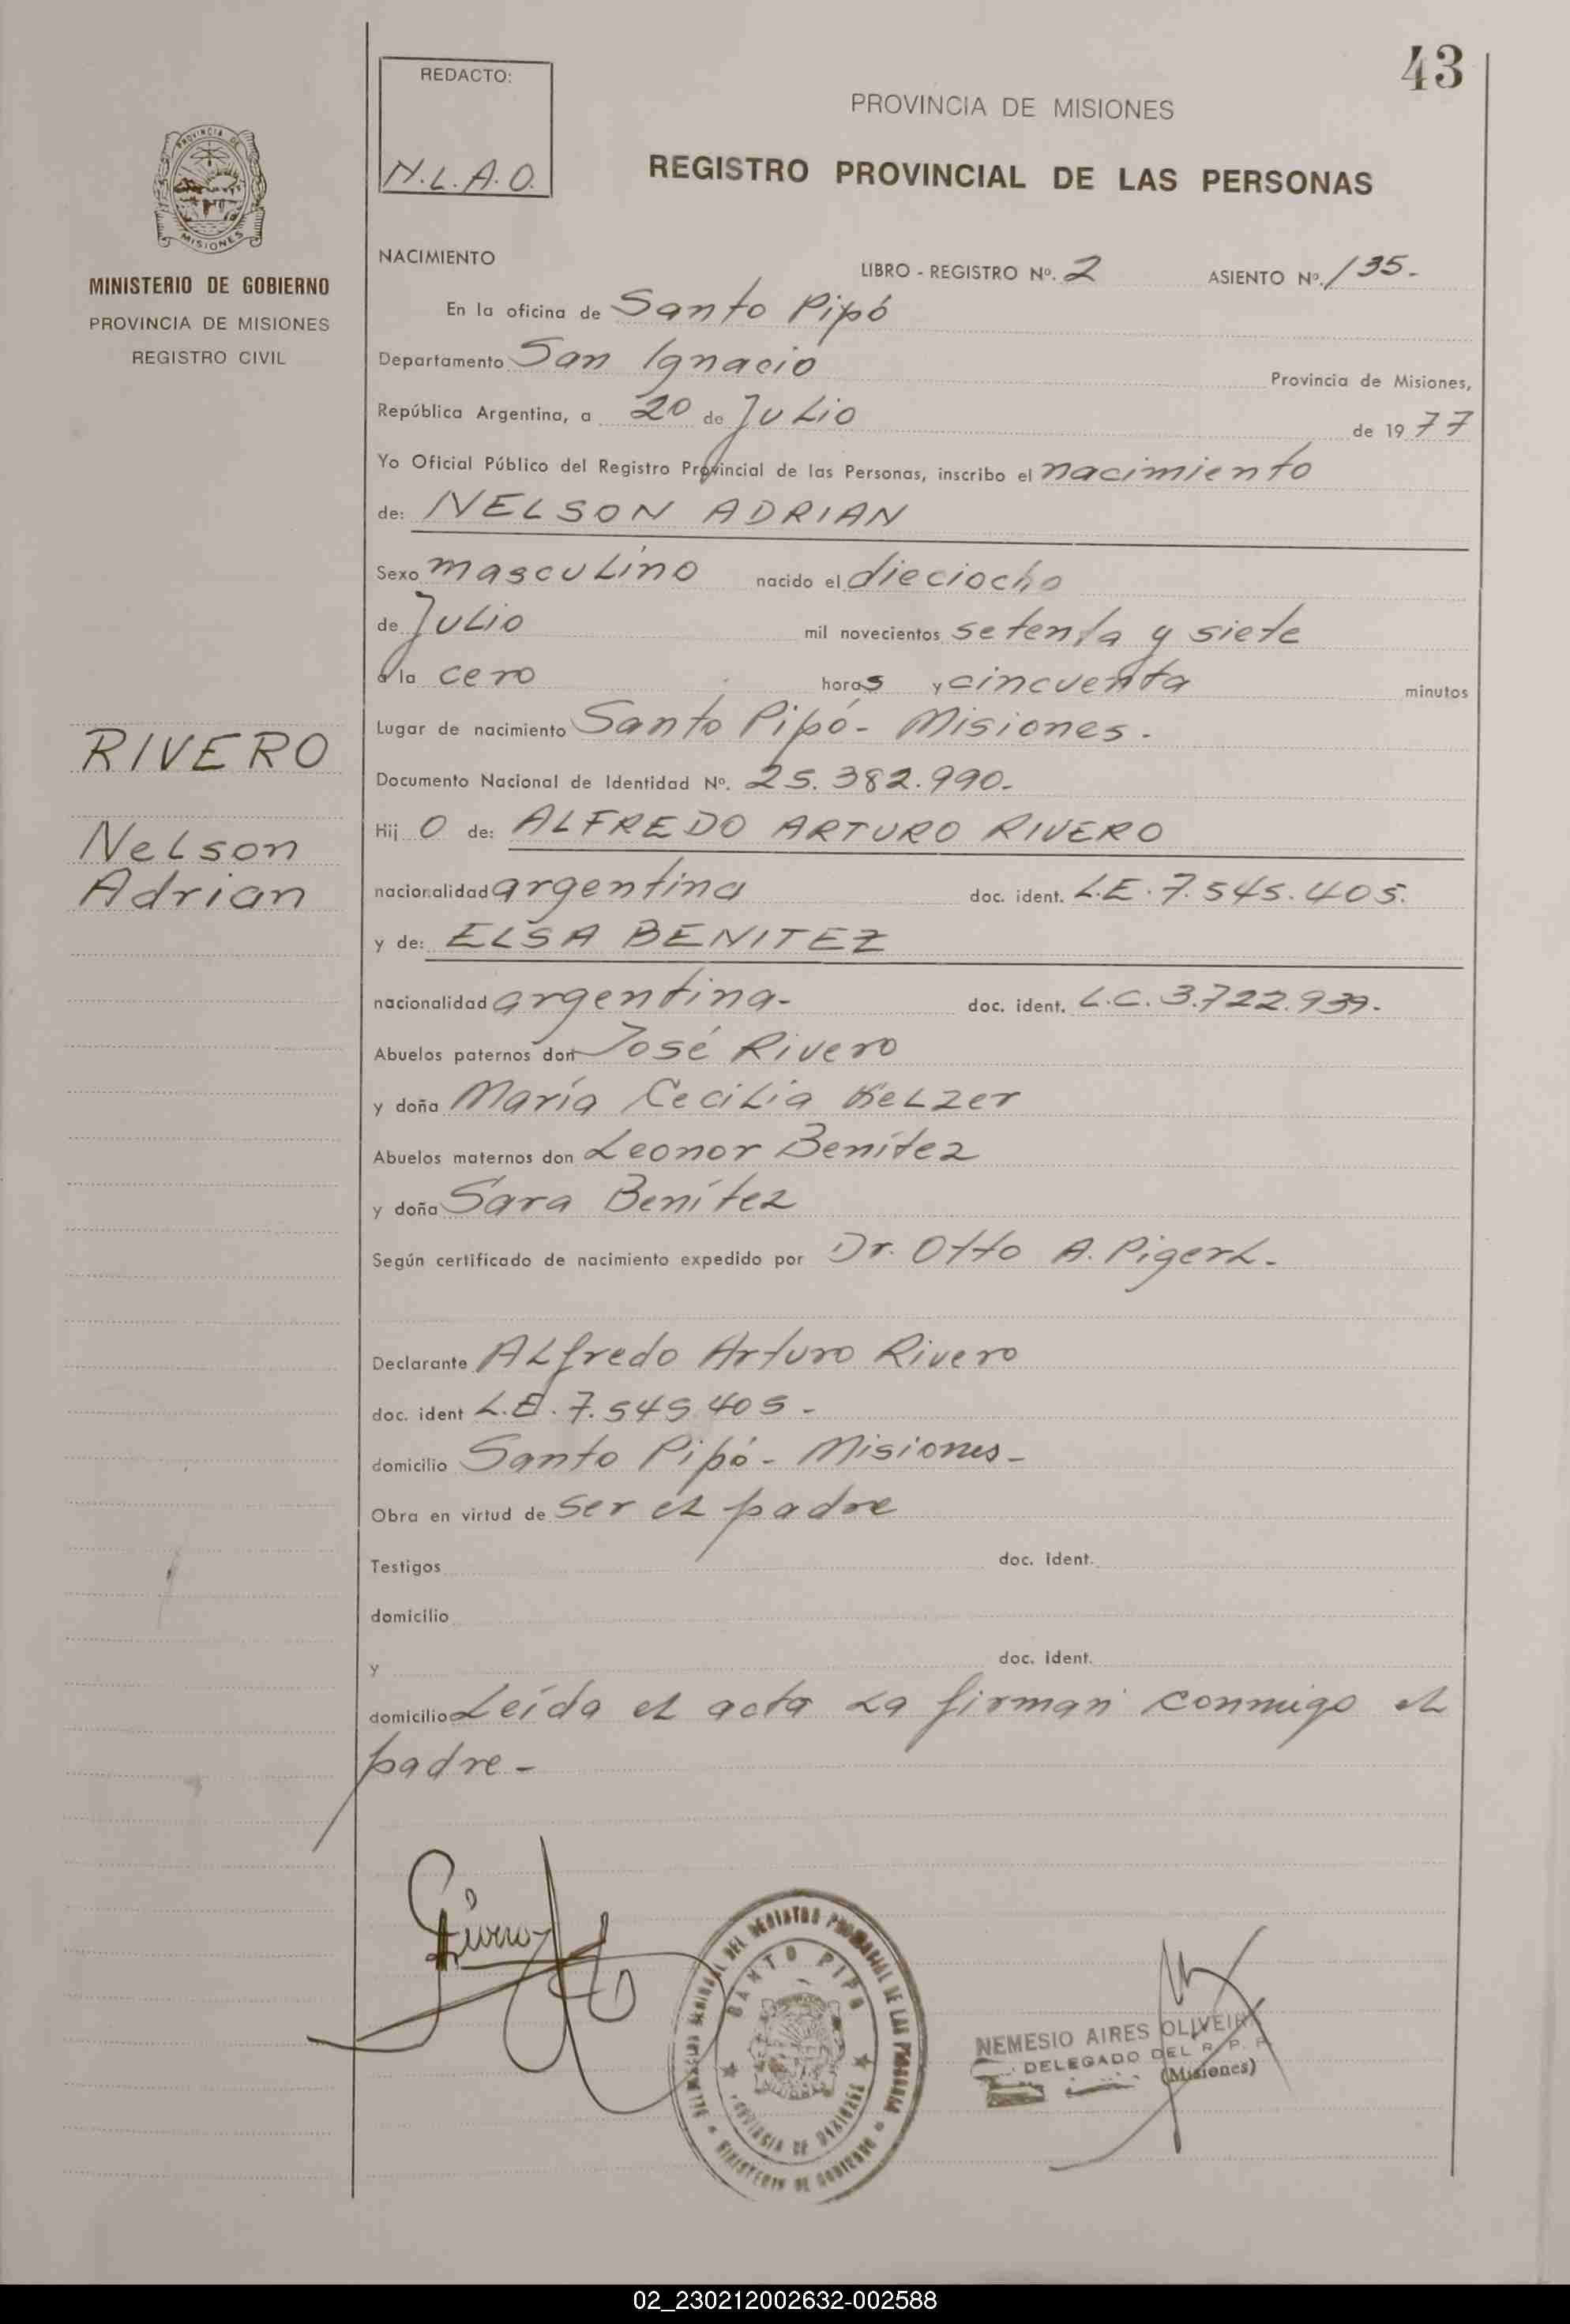 43
REDACTO:
N.L.A.O.
PROVINCIA DE MISIONES
REGISTRO PROVINCIAL DE LAS PERSONAS
PROVINCIA DE
MISIONES
MINISTERIO DE GOBIERNO
PROVINCIA DE MISIONES
REGISTRO CIVIL
NACIMIENTO
LIBRO - REGISTRO Nº. 2 ASIENTO Nº. 135.-
En la oficina de Santo Pipó
Departamento San Ignacio Provincia de Misiones,
República Argentina, a 20 de Julio de 1977
Yo Oficial Público del Registro Provincial de las Personas, inscribo el nacimiento
de: NELSON ADRIAN
Sexo masculino nacido el dieciocho
de Julio mil novecientos setenta y siete
a la cero horas y cincuenta minutos
Lugar de nacimiento Santo Pipó - Misiones.
Documento Nacional de Identidad Nº. 25.382.990.-
Hij O de: ALFREDO ARTURO RIVERO
nacionalidad argentina doc. ident. L.E. 7.545.405.
y de: ELSA BENITEZ
nacionalidad argentina- doc. ident. L.C. 3.722.939.-
Abuelos paternos don José Rivero
y doña María Cecilia Kelzer
Abuelos maternos don Leonor Benítez
y doña Sara Benítez
Según certificado de nacimiento expedido por Dr. Otto A. Pigerl.-
Declarante Alfredo Arturo Rivero
doc. ident L.E. 7.545.405.-
domicilio Santo Pipó - Misiones-
Obra en virtud de ser el padre
Testigos doc. ident.
domicilio
y doc. ident.
domicilio Leída el acta la firman conmigo el
padre.-
RIVERO
Nelson
Adrian
Rivero
SANTO PIPO
PROVINCIA DE MISIONES
MINISTERIO DE GOBIERNO
NEMESIO AIRES OLIVEIRA
DELEGADO DEL R. P. P.
(Misiones)
02_230212002632-002588